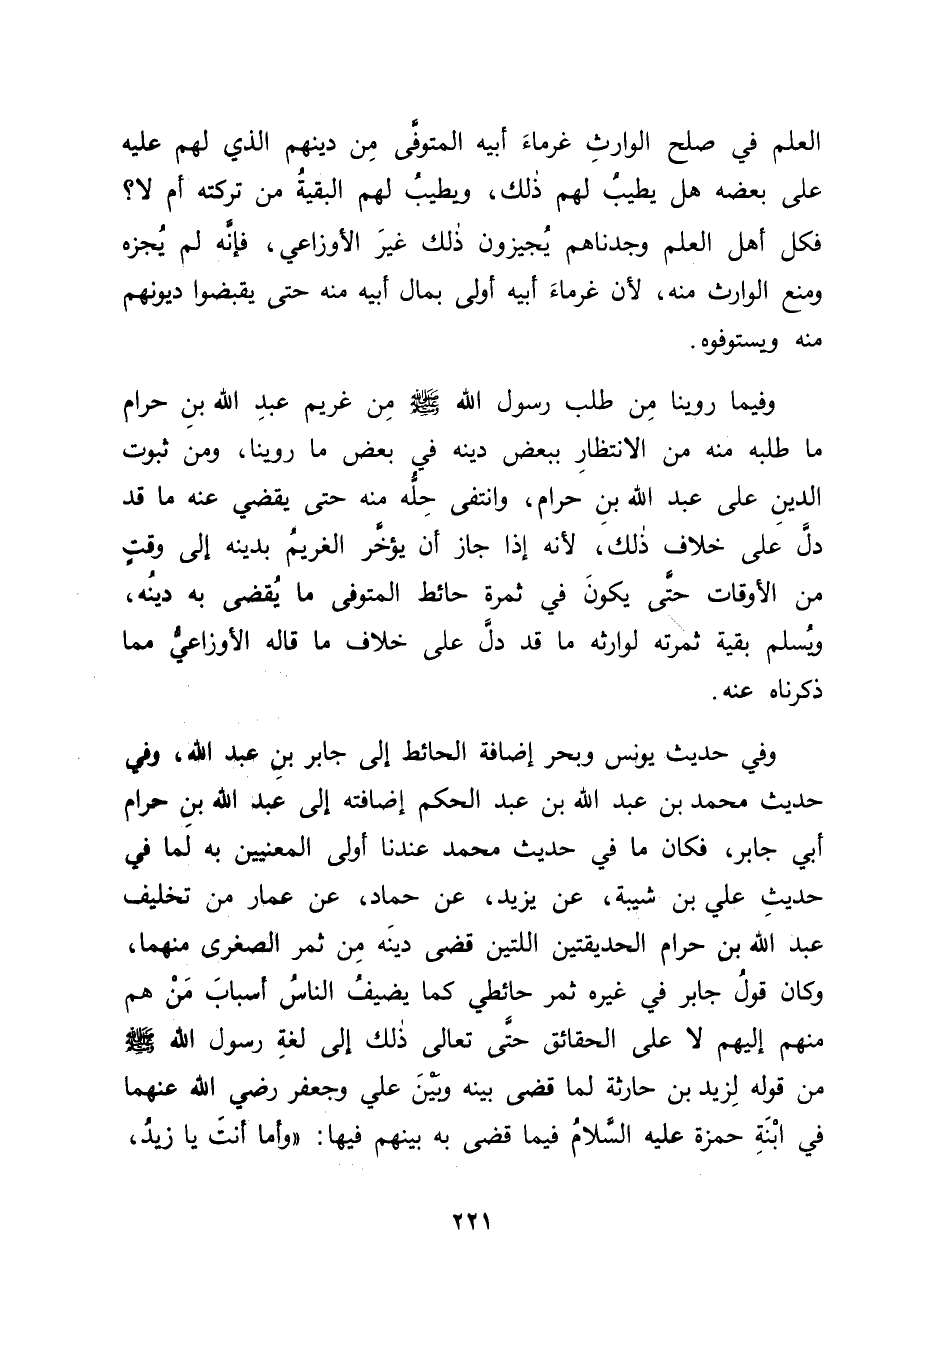 العلم في صلح الوارثِ غرماءَ أبيه المتوفَّى مِن دينهم الذي لهم عليه
على بعضه هل يطيبُ لهم ذٰلك، ويطيبُ لهم البقيةُ من تركته أم لا؟
فكل أهل العلم وجدناهم يُجيزون ذٰلك غيرَ الأوزاعي، فإنَّه لم يُجزه
ومنع الوارث منه، لأن غرماءَ أبيه أولى بمال أبيه منه حتى يقبضوا ديونهم
منه ويستوفوه.
وفيما روينا مِن طلب رسول الله ﷺ مِن غريم عبدِ الله بنِ حرام
ما طلبه منه من الانتظارِ ببعض دينه في بعض ما روينا، ومن ثبوت
الدينِ على عبد الله بنِ حرام، وانتفى حِلُّه منه حتى يقضي عنه ما قد
دلَّ على خلاف ذٰلك، لأنه إذا جاز أن يؤخَّر الغريمُ بدينه إلى وقتٍ
من الأوقات حتَّى يكونَ في ثمرة حائط المتوفى ما يُقضى به دينُه،
ويُسلم بقية ثمرته لوارثه ما قد دلَّ على خلاف ما قاله الأوزاعيُّ مما
ذكرناه عنه.
وفي حديث يونس وبحر إضافة الحائط إلى جابر بنِ عبد الله، وفي
حديث محمد بن عبد الله بن عبد الحكم إضافته إلى عبد الله بنِ حرام
أبي جابر، فكان ما في حديث محمد عندنا أولى المعنيين به لَما في
حديثِ علي بن شيبة، عن يزيد، عن حماد، عن عمار من تخليف
عبد الله بن حرام الحديقتين اللتين قضى دينَه مِن ثمر الصغرى منهما،
وكان قولُ جابر في غيره ثمر حائطي كما يضيفُ الناسُ أسبابَ مَنْ هم
منهم إليهم لا على الحقائق حتَّى تعالى ذٰلك إلى لغةِ رسول الله ﷺ
من قوله لِزيد بن حارثة لما قضى بينه وبَيْنَ علي وجعفر رضي الله عنهما
في ابْنَةِ حمزة عليه السَّلامُ فيما قضى به بينهم فيها: «وأما أنتَ يا زيدُ،
٢٢١